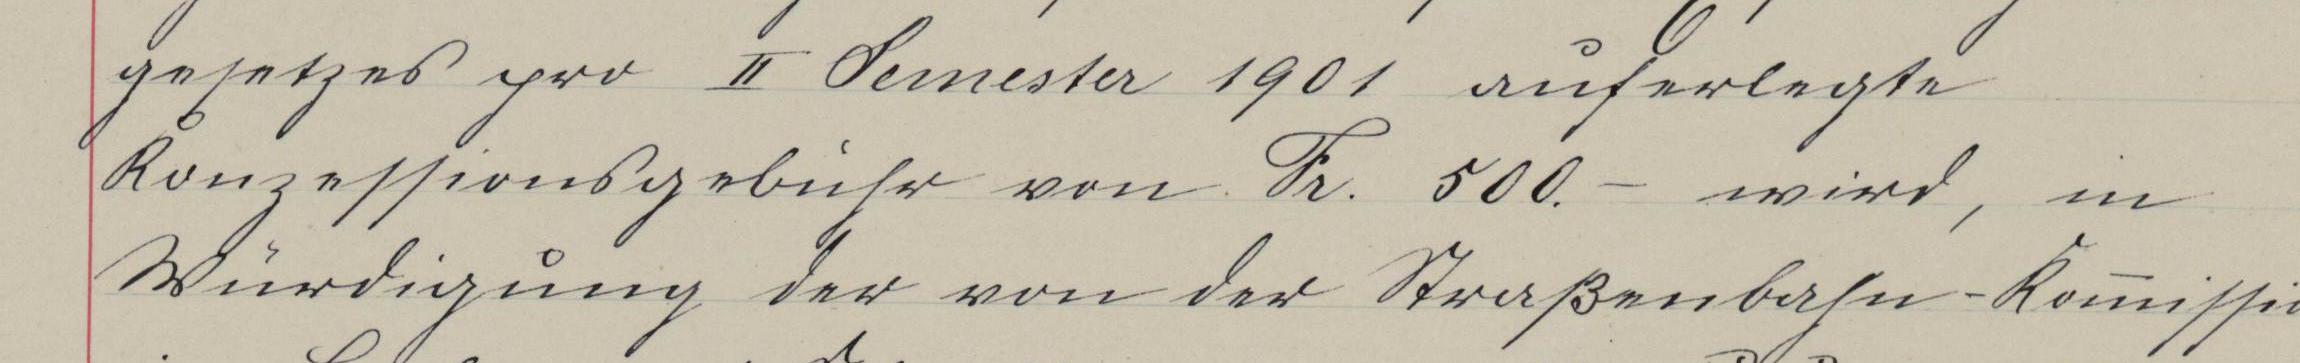 gesetzes pro II Semester 1901 auferlegte
Konzessionsgebühr von Fr. 500.– wird, in
Würdigung der von der Straßenbahn-Kom̅issio